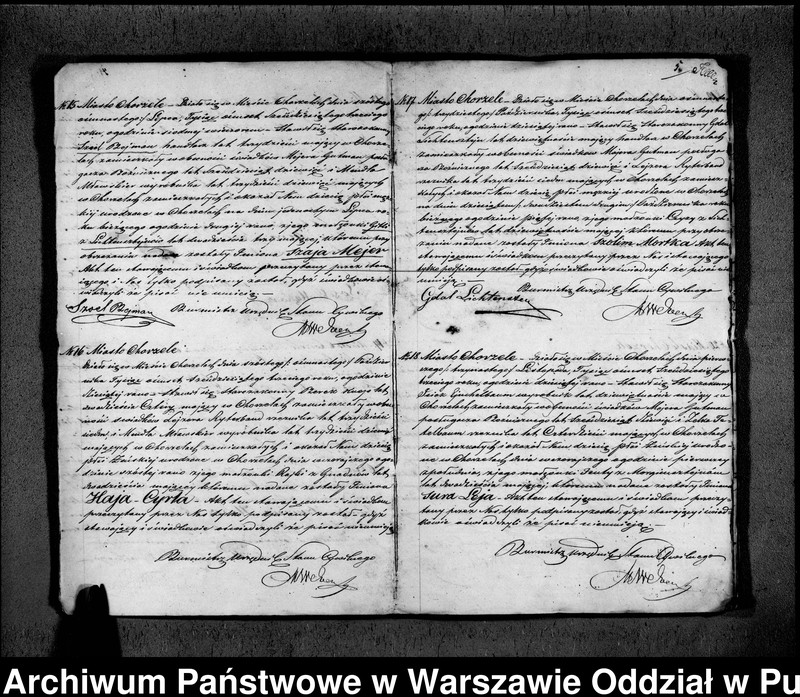 № 15 Miasto Chorzele – Działo się w Mieście Chorzelach dnia szóstego/
ośmnastego/ Lipca, Tysiąc ośmset Sześćdziesiątego trzeciego
roku, o godzinie siódmej wieczorem – Stawił się Starozakonny
Srol Rejman handlarz lat trzydzieści mający w Chorze-
lach zamieszkały w obecności świadków Mejera Gutman
lat Sześćdziesiąt dziewięć i Mendla
Mławskiego wyrobnika lat trzydzieści dziewięć mających
w Chorzelach zamieszkałych i okazał Nam dziecię płci męz-
kiej urodzone w Chorzelach na dniu Lipca ro-
ku bieżącego o godzinie drugiej rano, z jego małżonki Gitli
z lat dwadzieścia trzy mającej, któremu przy
obrzezaniu nadane zostały Imiona Szaja Mejer
Akt ten stawającemu i świadkom przeczytany przez stawa-
jącego i Nas tylko podpisany został, gdyż świadkowie oś-
wiadczyli że pisać nie umieją
Srol Rejman Burmistrz Urzędnik Stanu Cywilnego
№ 16 Miasto Chorzele
Działo się w Mieście Chorzelach dnia szóstego/ ośmnastego/ Paździer-
nika Tysiąc ośmset Sześćdziesiątego trzeciego roku, o godzinie
dziewiątej rano – Stawił się Starozakonny Berek lat
dwadzieścia Cztery mający w Chorzelach zamieszkały w obe-
cności świadków Lejzora Ryterband rzeźnika lat trzydzieści
siedm, i Mendla Mławskiego wyrobnika lat trzydzieści dziewięć
mających w Chorzelach zamieszkałych i okazał Nam dziecię
płci Żeńskiej urodzone w Chorzelach dnia wczorajszego o go-
dzinie szóstej rano z jego małżonki Rojzi z Gradusów lat
dwadzieścia mającej któremu nadane zostały Imiona
Haja Cyrla – Akt ten stawającemu i świadkom
przeczytany przez Nas tylko podpisany został, gdyż
stawający i świadkowie oświadczyli że pisać nie umieją
Burmistrz Urzędnik Stanu Cywilnego
5.
№ 17 Miasto Chorzele – Działo się w Mieście Chorzelach dnia ośmnaste-
go/ trzydziestego/ Października Tysiąc ośmset Sześćdziesiątego trze-
ciego roku, o godzinie dziewiątej rano – Stawił się Starozakonny Gdal
Lichtensztejn lat dziewiętnaście mający handlarz w Chorzelach
zamieszkały w obecności świadków Mejera Gutman
lat Sześćdziesiąt dziewięć i Lejzora Ryterband
rzeźnika lat trzydzieści siedm mających w Chorzelach zamiesz-
kałych i okazał Nam dziecię płci męzkiej urodzone w Chorzelach
na dniu Października roku
bieżącego o godzinie piątej rano z jego małżonki Cypy z
lat dwadzieścia mającej któremu przy ob-
rzezaniu nadane zostały Imiona Szolim Mortka Akt ten
stawającemu i świadkom przeczytany przez Nas i stawającego
tylko podpisany został, gdyż świadkowie oświadczyli że pisać nie
umieją Burmistrz Urzędnik Stanu Cywilnego
Gdal Lichtensten
№ 18 Miasto Chorzele – Działo się w Mieście Chorzelach dnia pierw-
szego/ trzynastego/ Listopada, Tysiąc ośmset Sześćdziesiątego
trzeciego roku, o godzinie dziesiątej rano – Stawił się Starozakonny
wyrobnik lat dziewiętnaście mający w
Chorzelach zamieszkały w obecności świadków Mejera Gutman
lat Sześćdziesiąt dziewięć – Icka
rzeźnika lat Czterdzieści mających w Chorzelach
zamieszkałych i okazał Nam dziecię płci Żeńskiej urodzo-
ne w Chorzelach dnia wczorajszego o godzinie pierwszej
z południa, z jego małżonki
lat dwadzieścia mającej któremu nadane zostały Imiona
Sura Łaja. Akt ten stawającemu i świadkom przeczy-
tany przez Nas tylko podpisany został, gdyż stawający i świad-
kowie oświadczyli że pisać nie umieją –
Burmistrz Urzędnik Stanu Cywilnego
Archiwum Państwowe w Warszawie Oddział w Pu